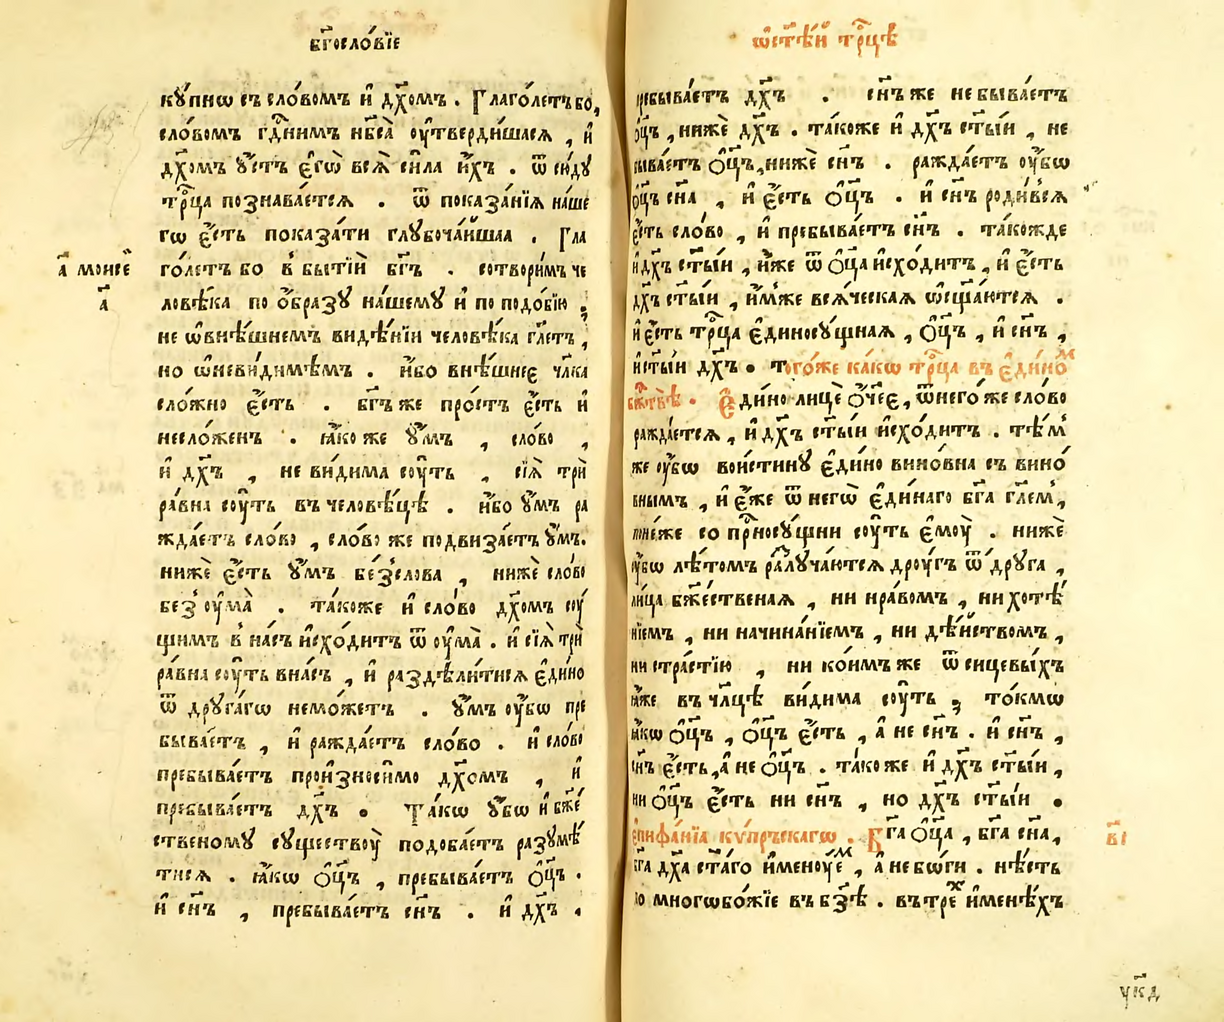 бг҃осло́вїе
кꙋ́пнѡ съ сло́вомъ и҆ дх҃омъ . Глаго́летъ бо,
сло́вомъ гдⷭ҇нимъ нб҃са̀ оу҆тверди́шася , и҆
дх҃омъ оу҆́стъ є҆гѡ̀ всѧ̀ си́ла и҆́хъ . ѿ сю́дꙋ
трⷪ҇ца познава́етсѧ . ѿ показа́нїѧ на́ше
гѡ є҆́сть показа́ти глꙋбоча́йшаа . Гла
го́летъ бо в̾ бытїѝ бг҃ъ . сотвори́мъ че
лове́ка по о҆́бразꙋ на́шемꙋ и҆ по подо́бїю ;
не ѡ҆ внѣ́шнемъ ви́дѣнїи человѣ́ка гл҃етъ ,
но ѡ҆ неви́димѣмъ . и҆́бо внѣ́шнее чл҃ка
сло́жно є҆́сть . бг҃ъ же про́стъ є҆́сть и҆
несло́женъ . ꙗ҆́ко же оу҆́мъ , сло́во ,
и҆ дх҃ъ , не ви́дима сꙋ́ть , сїѧ̀ трѝ
ра́вна сꙋ́ть въ человѣ́цѣ . и҆́бо оу҆́мъ ра
жда́етъ сло́во , сло́во же подвиза́етъ оу҆́мъ.
нижѐ є҆́сть оу҆́мъ без̾ сло́ва , нижѐ сло́во
без̾ оу҆ма̀ . та́коже и҆ сло́во дх҃омъ сꙋ́
щимъ в̾ на́съ и҆схо́дитъ ѿ оу҆ма̀ . и҆ сїѧ̀ трѝ
ра́вна сꙋ́ть в на́съ , и҆ раздѣли́тисѧ є҆ди́но
ѿ дрꙋга́гѡ не мо́жетъ . оу҆́мъ оу҆́бѡ пре
быва́етъ , и҆ ражда́етъ сло́во . и҆ сло́во
пребыва́етъ произноси́мо дх҃омъ , и҆
пребыва́етъ дх҃ъ . Та́кѡ оу҆́бѡ и҆ бж҃е́
ственомꙋ сꙋществꙋ̀ подоба́етъ разꙋмѣ́
тисѧ . ꙗ҆́кѡ ѻ҆ц҃ъ , пребыва́етъ ѻ҆ц҃ъ .
и҆ сн҃ъ , пребыва́етъ сн҃ъ . и҆ дх҃ъ .
а҃ моисе́и
а҃
ѡ҆ ст҃ѣ́й трⷪ҇цѣ
пребыва́етъ дх҃ъ . сн҃ъ же не быва́етъ
ѻ҆ц҃ъ , нижѐ дх҃ъ . та́коже и҆ дх҃ъ ст҃ы́й , не
быва́етъ ѻ҆ц҃ъ, нижѐ сн҃ъ . ражда́етъ оу҆́бѡ
ѻ҆ц҃ъ сн҃а , и҆ є҆́сть ѻ҆ц҃ъ . и҆ сн҃ъ роди́всѧ
є҆́сть сло́во , и҆ пребыва́етъ сн҃ъ . та́кожде
и҆ дх҃ъ ст҃ы́й , и҆́же ѿ ѻ҆ц҃а и҆схо́дитъ , и҆ є҆́сть
дх҃ъ ст҃ы́й , и҆́мже всѧ́ческаѧ ѡ҆сщ҃а́ютсѧ .
и҆ є҆́сть трⷪ҇ца є҆диносꙋ́щнаѧ , ѻ҆ц҃ъ , и҆ сн҃ъ ,
и҆ ст҃ы́й дх҃ъ . того́же ка́кѡ трⷪ҇ца въ є҆ди́номⷨ
бж҃ствѣ̀ . Є҆ди́но лицѐ ѻ҆́ч҃ее , ѿ него́ же сло́во
ражда́етсѧ , и҆ дх҃ъ ст҃ы́й и҆схо́дитъ . тѣ́м
же оу҆́бѡ вои́стинꙋ є҆ди́но вино́вна съ вино́
внымъ , и҆ є҆́же ѿ негѡ̀ є҆ди́наго бг҃а гл҃ем̾ ,
поне́же со прⷭ҇носꙋ́щни сꙋ́ть є҆мꙋ̀ . нижѐ
оу҆́бѡ лѣ́томъ разлꙋча́ютсѧ дрꙋ́гъ ѿ дрꙋ́га ,
лица̀ бж҃е́ственаѧ , ни нра́вомъ , ни хотѣ́
нїемъ , ни начина́нїемъ , ни дѣ́йствомъ ,
ни стра́стїю , ни ко́имъ же ѿ сицевы́хъ
ꙗ҆́же въ чл҃цѣ ви́дима сꙋ́ть ; то́кмѡ
ꙗ҆́кѡ ѻ҆ц҃ъ , ѻ҆ц҃ъ є҆́сть , а҆ не сн҃ъ . и҆ сн҃ъ ,
сн҃ъ є҆́сть, а҆ не ѻ҆ц҃ъ . та́коже и҆ дх҃ъ ст҃ы́й ,
ни ѻ҆ц҃ъ є҆́сть ни сн҃ъ , но дх҃ъ ст҃ы́й .
є҆пифа́нїа кѵ́прьскагѡ . Бг҃а ѻ҆ц҃а , бг҃а сн҃а ,
бг҃а дх҃а ст҃а́го и҆менꙋ́емⷨ , а҆ не бо́ги . нѣ́сть
бо многѡбо́жїе въ бз҃ѣ . въ тре́хⷯ и҆менѣ́хъ
в҃і
ук҃д